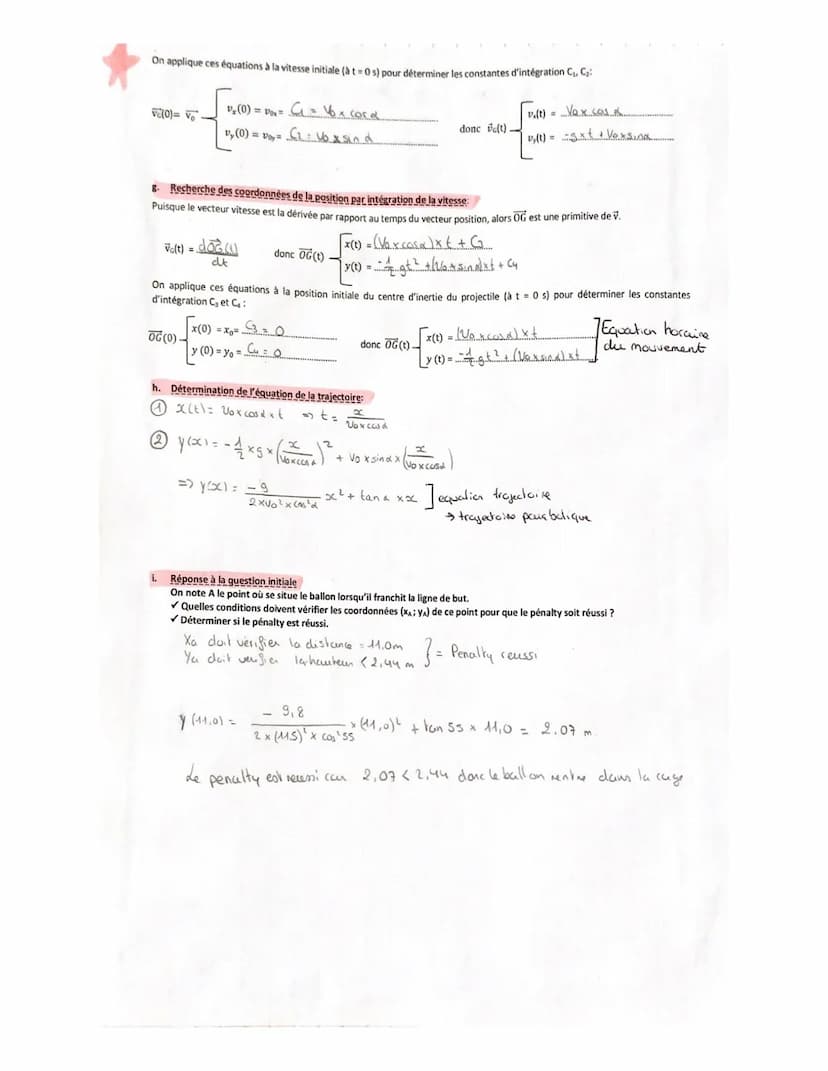 On applique ces équations à la vitesse initiale (à t = 0 s) pour déterminer les constantes d'intégration C₁, C₂:
vₓ(0) = v₀ₓ = C₁ = V₀ x cos α
vₓ(t) = V₀ x cos α
v⃗G(0)= v⃗₀
donc v⃗G(t)
vᵧ(0) = v₀ᵧ = C₂ = V₀ x sin α
vᵧ(t) = -g x t + V₀ x sin α
g. Recherche des coordonnées de la position par intégration de la vitesse:
Puisque le vecteur vitesse est la dérivée par rapport au temps du vecteur position, alors OG⃗ est une primitive de v⃗.
v⃗G(t) = dOG⃗(t)/dt donc OG⃗(t)
x(t) = (V₀ x cos α) x t + C₃
y(t) = -1/2 gt² + (V₀ x sin α) x t + C₄
On applique ces équations à la position initiale du centre d'inertie du projectile (à t = 0 s) pour déterminer les constantes
d'intégration C₃ et C₄ :
x(0) = x₀ = C₃ = 0
x(t) = (V₀ x cos α) x t
] Equation horaire
OG⃗(0)
donc OG⃗(t)
y (0) = y₀ = C₄ = 0
y (t) = -1/2 gt² + (V₀ x sin α) x t
du mouvement
h. Détermination de l'équation de la trajectoire:
① x(t) = V₀ x cos α x t => t = x/(V₀ x cos α)
② y(x) = -1/2 x g x (x/(V₀ x cos α))² + V₀ x sin α x (x/(V₀ x cos α))
=> y(x) = -g/(2 x V₀² x cos² α) x² + tan α x x ] equation trajectoire
→ trajectoire parabolique
i. Réponse à la question initiale
On note A le point où se situe le ballon lorsqu'il franchit la ligne de but.
✓ Quelles conditions doivent vérifier les coordonnées (xA ; yA) de ce point pour que le pénalty soit réussi ?
✓ Déterminer si le pénalty est réussi.
Xa doit vérifier la distance = 11.0m
} = Penalty reussi
Ya doit verifier la hauteur < 2,44 m
y (11,0) = -9,8/(2 x (11.5)² x cos² 55) x (11,0)² + tan 55 x 11,0 = 2.07 m
Le penalty est reussi car 2,07 < 2,44 donc le ballon rentre dans la cage